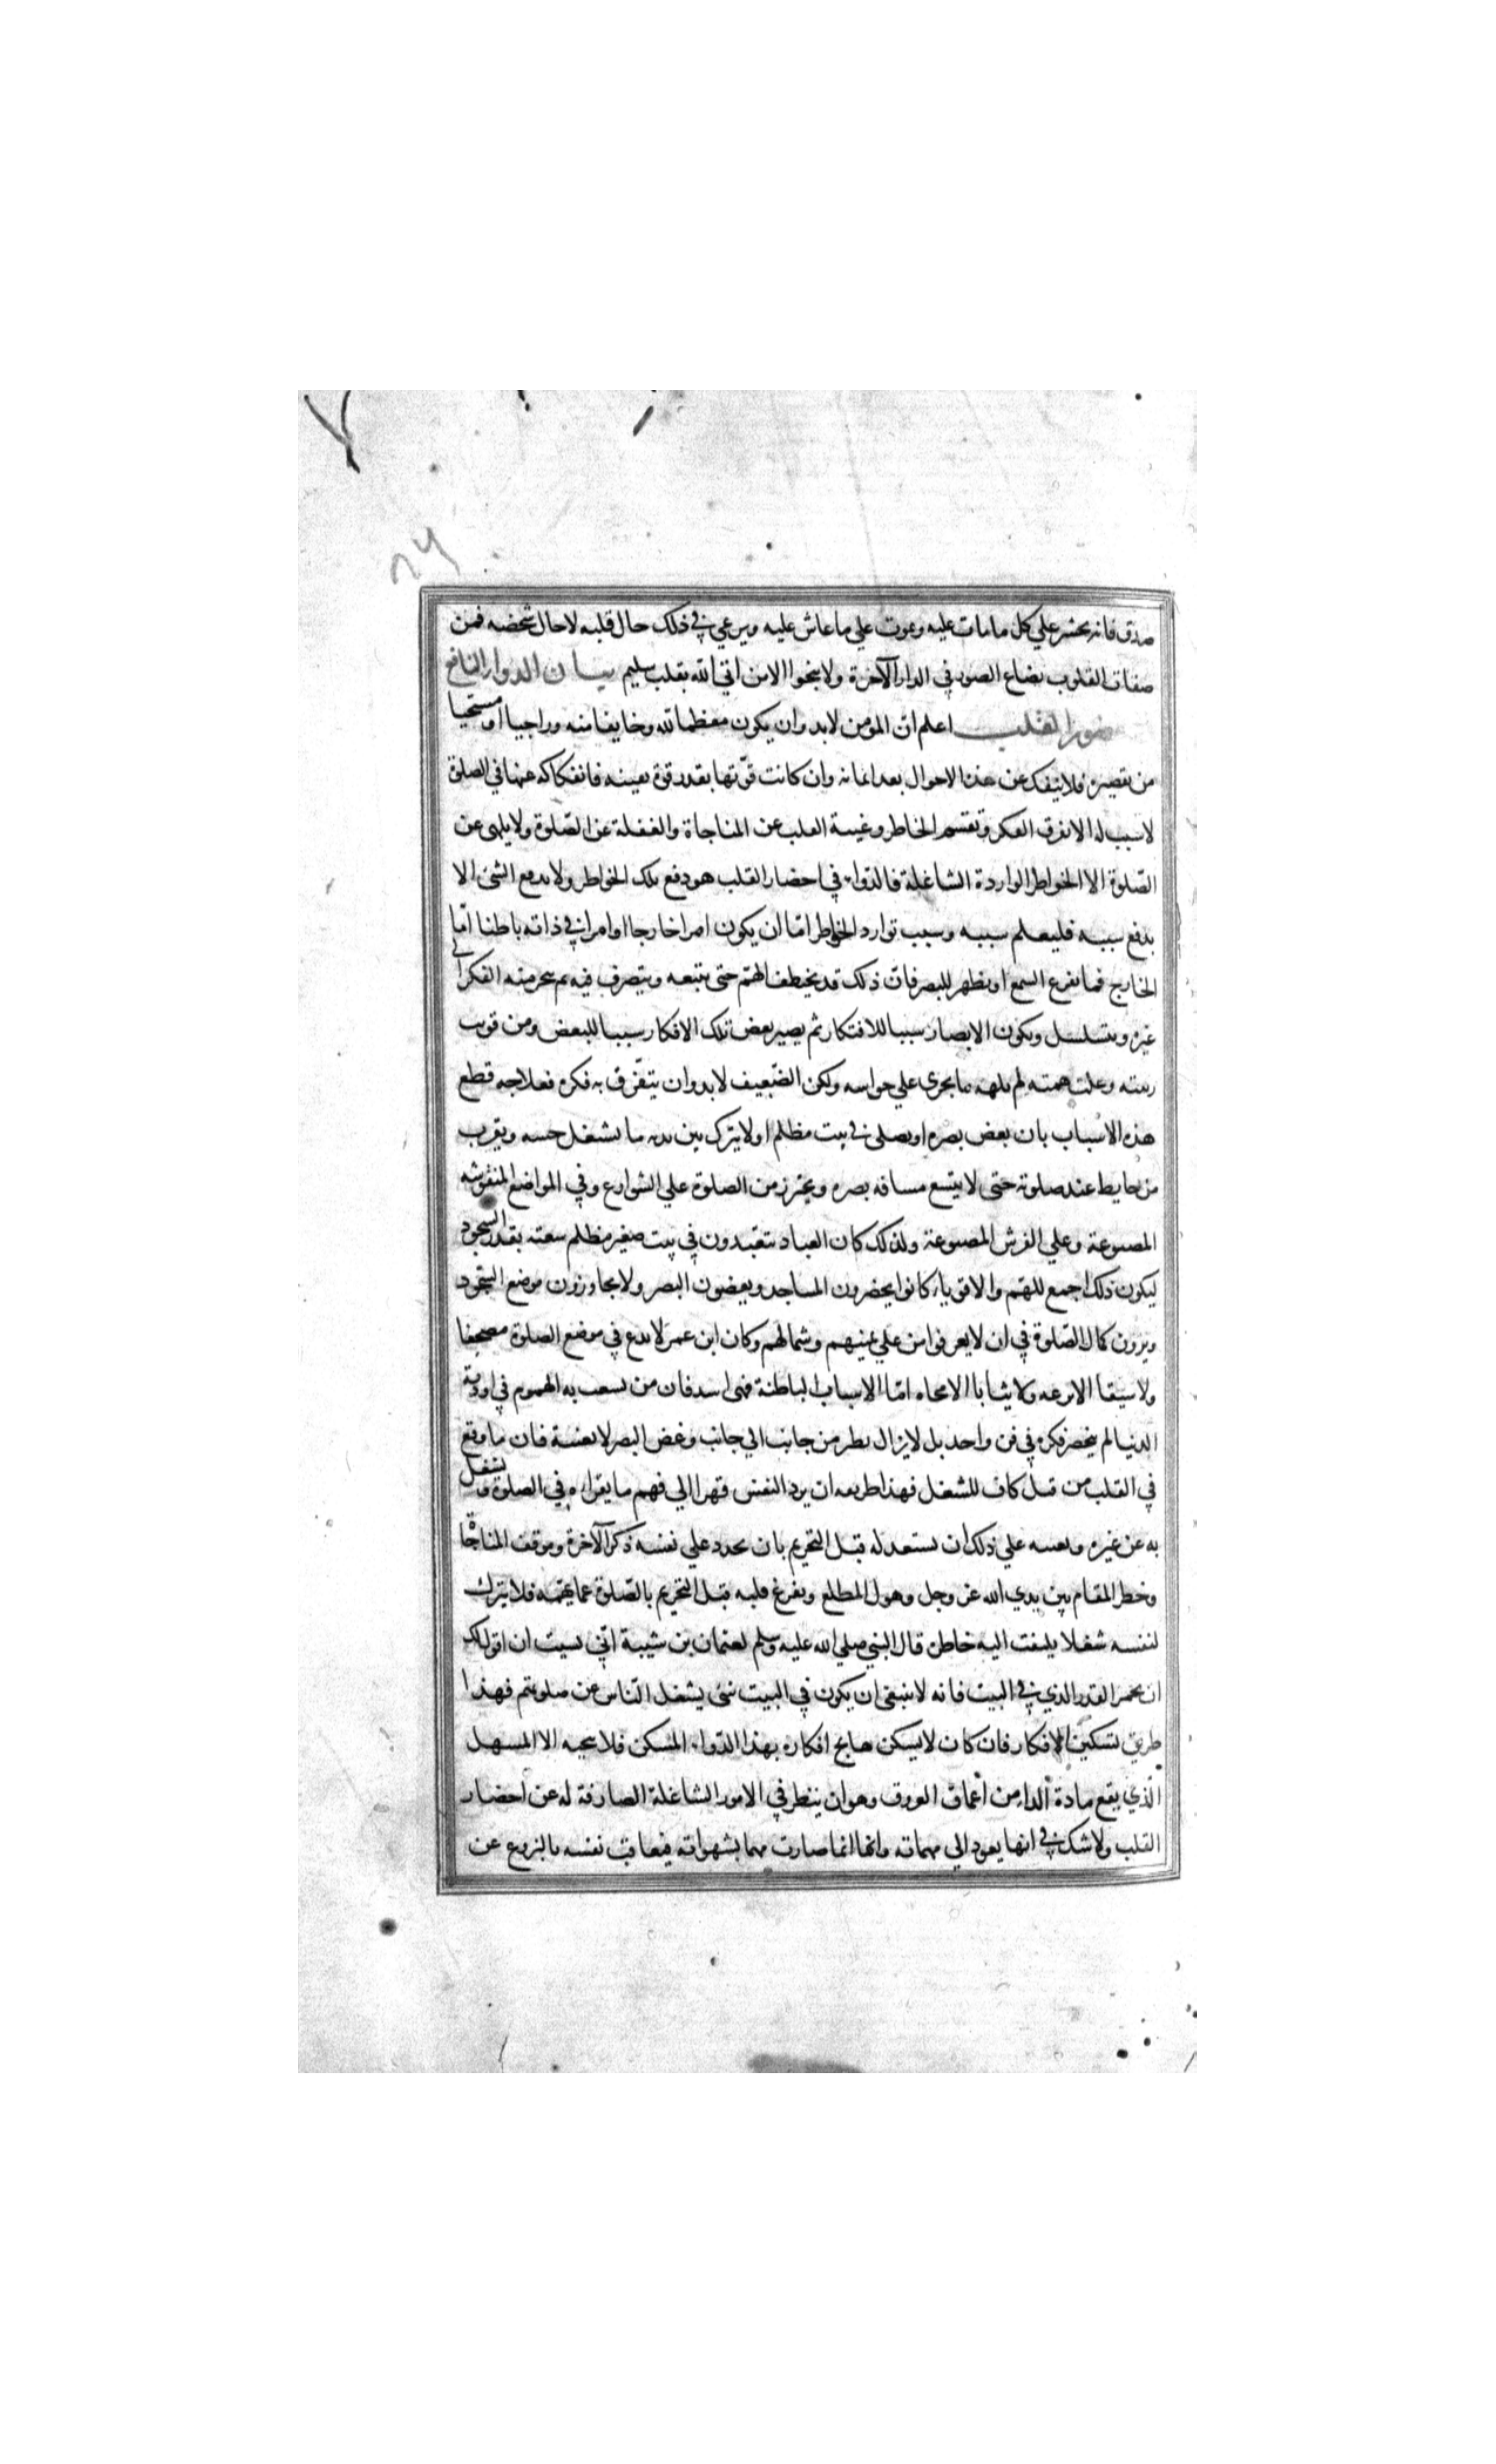 ٢٦
صدق فانه يحشر علي كل ما مات عليه ويموت علي ما عاش عليه ويرعي في ذلك حال قلبه لا حال شخصه فمن
صفات القلوب يصاع الصور في الدار الآخرة ولا ينجوا الا من اتي الله بقلب سليم بيان الدواء النافع
حضور القلب اعلم ان المؤمن لا بد وان يكون معظما لله وخايفا منه وراجيا او مستحيا
من تقصيره فلا ينفك عن هذه الاحوال بعد ايمانه وان كانت قوّتها بقدر قوة يقينه فانفكاكه عنها في الصلوة
لا سبب له الا تفرق الفكر وتقسيم الخاطر وغيبة القلب عن المناجاة والغفلة عن الصّلوة ولا يلهي عن
الصّلوة الا الخواطر الواردة الشاغلة فالدّواء في احضار القلب هو دفع تلك الخواطر ولا يدفع الشئ الا
بدفع سببه فليعلم سببه وسبب توارد الخواطر امّا ان يكون امرا خارجا او امرا في ذاته باطنا امّا
الخارج فما يقرع السمع او يظهر للبصر فان ذلك قد يخطف الهمّ حتى يتبعه ويتصرف فيه ثم ينجر منه الفكر الي
غيره ويتسلسل ويكون الابصار سببا للافتكار ثم يصير بعض تلك الافكار سببا للبعض ومن قويت
رتبته وعلت همته لم يلهه ما يجري علي حواسه ولكن الضّعيف لا بد وان يتفّرق به فكره فعلاجه قطع
هذه الاسباب بان يغض بصره او يصلي في بيت مظلم او لا يترك بين يديه ما يشغل حسه ويقرب
من حايط عند صلوته حتى لا يتسع مسافة بصره ويحترز من الصلوة علي الشوارع وفي المواضع المنقوشة
المصبوغة وعلي الفرش المصبوغة ولذلك كان العباد يتعبدون في بيت صغير مظلم سعته بقدر السجود
ليكون ذلك اجمع للهّم والاقوياء كانوا يحضرون المساجد ويغضون البصر ولا يجاوزون موضع السّجود
ويرون كمال الصّلوة في ان لا يعرفوا من علي يمينهم وشمالهم وكان ابن عمر لا يدع في موضع الصلوة مصحفا
ولا سيفا الا نزعه ولا كتابا الا محاه امّا الاسباب الباطنة فهي اشد فان من تشعبت به الهموم في اودية
الدنيا لم ينحصر فكره في فن واحد بل لا يزال يطير من جانب الي جانب وغض البصر لا يغنيه فان ما وقع
في القلب من قبل كاف للشغل فهذا طريقه ان يرد النفس قهرا الي فهم ما يقراءه في الصلوة ويشغل
به عن غيره ويعينه علي ذلك ان يستعد له قبل التحريم بان يجدد علي نفسه ذكر الآخرة وموقف المناجاة
وخطر المقام بين يدي الله عز وجل وهول المطلع ويفرغ قلبه قبل التحريم بالصّلوة عما يهمّه فلا يترك
لنفسه شغلا يلتفت اليه خاطره قال النبي صلي الله عليه وسلم لعثمان بن شيبة انّي نسيت ان اقول لك
ان تخمر القدر الذي في البيت فانه لا ينبغي ان يكون في البيت شئ يشغل الناس عن صلوتهم فهذا
طريق تسكين الافكار فان كان لا يسكن هايج افكاره بهذا الدّواء المسكن فلا ينجيه الا المسهل
الّذي يقمع مادة الداء من اعماق العروق وهو ان ينظر في الامور الشاغلة الصارفة له عن احضار
القلب ولا شك في انها يعود الي مهماته وانها انما صارت مهما بشهواته فيعاقب نفسه بالنزوع عن